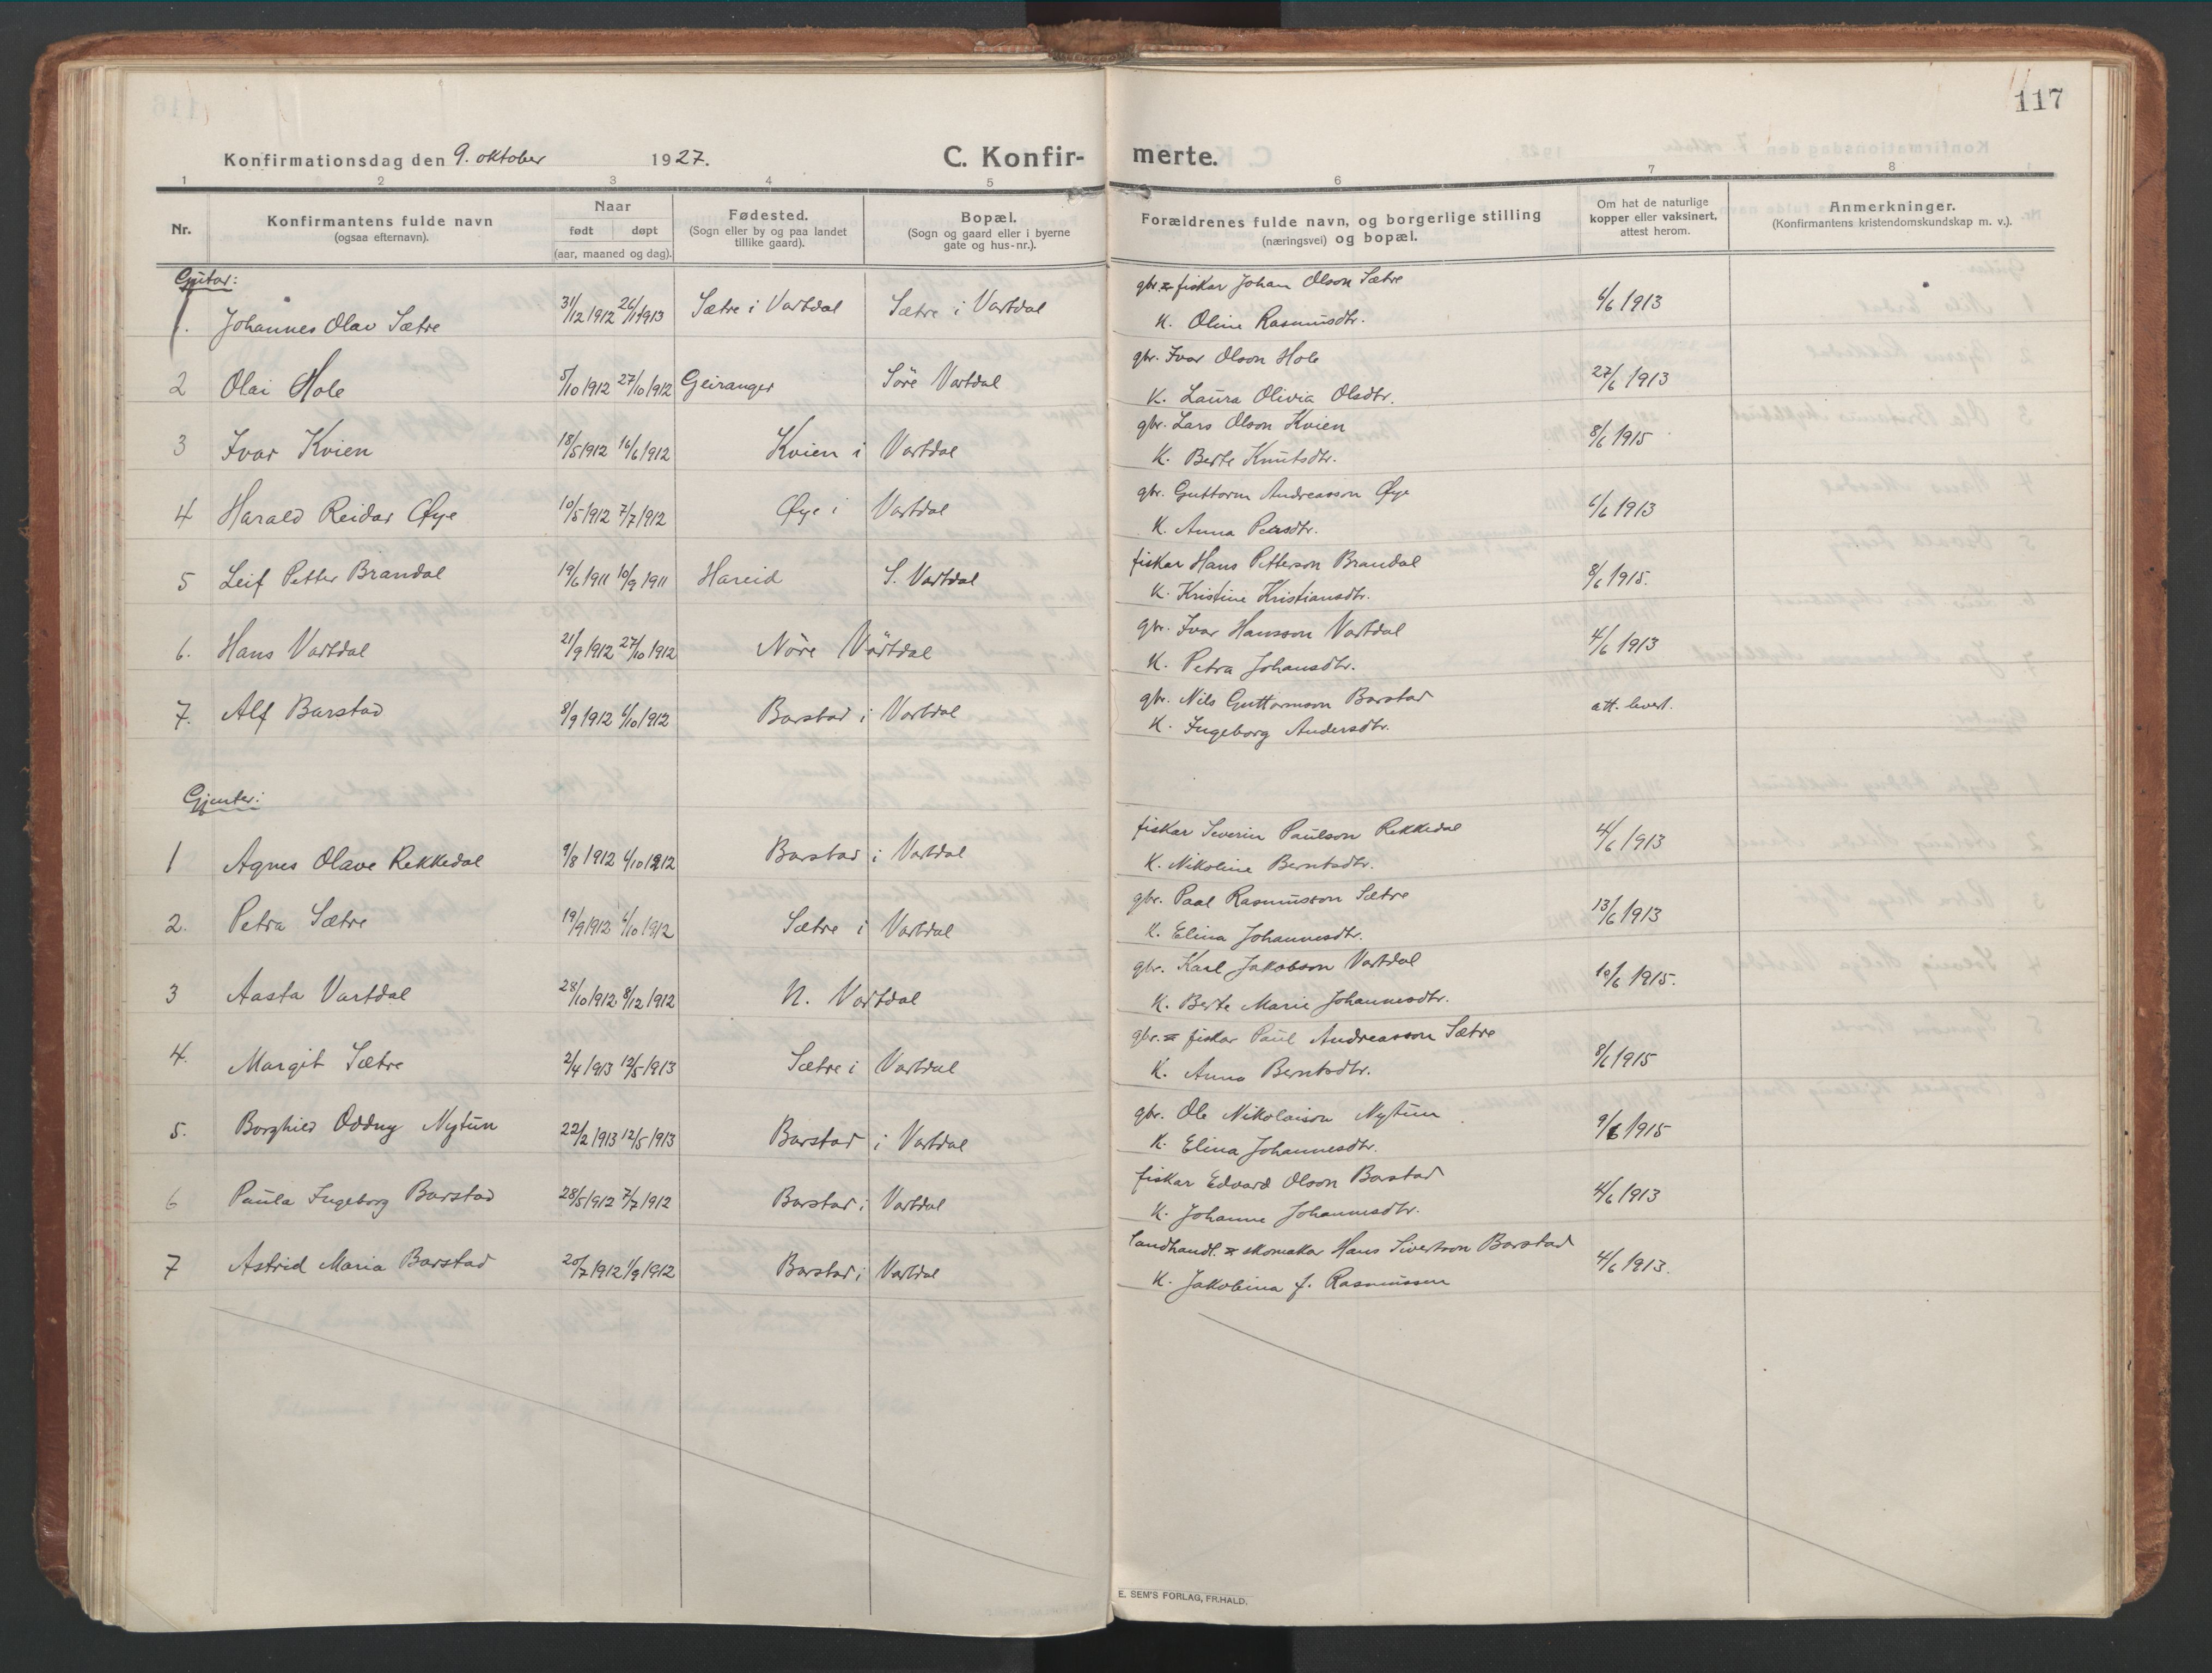 117
Konfirmationsdag den 9. oktober 1927. C. Konfir- merte.
1 2 3 4 5 6 7 8
Nr. Konfirmantens fulde navn (ogsaa efternavn). Naar født døpt (aar, maaned og dag). Fødested. (Sogn eller by og paa landet tillike gaard). Bopæl. (Sogn og gaard eller i byerne gate og hus-nr.). Forældrenes fulde navn, og borgerlige stilling (næringsvei) og bopæl. Om hat de naturlige kopper eller vaksinert, attest herom. Anmerkninger. (Konfirmantens kristendomskundskap m. v.).
Gutar:
1. Johannes Olav Sætre 31/12 1912 26/1 1913 Sætre i Vartdal Sætre i Vartdal gbr. & fiskar Johan Olson Sætre 6/6 1913
K. Oline Rasmusdtr.
2 Olai Hole 5/10 1912 27/10 1912 Geiranger Søre Vartdal gbr. Ivar Olson Hole 27/6 1913
K. Laura Olivia Olsdtr.
3 Ivar Kvien 18/5 1912 16/6 1912 Kvien i Vartdal gbr. Lars Olson Kvien 8/6 1915
K. Berte Knutsdtr.
4 Harald Reidar Øye 10/5 1912 7/7 1912 Øye i Vartdal gbr. Guttorm Andreasson Øye 6/6 1913
K. Anna Peersdtr.
5 Leif Petter Brandal 19/6 1911 10/9 1911 Hareid S. Vartdal fiskar Hans Petterson Brandal 8/6 1915.
K. Kristine Kristiansdtr.
6. Hans Vartdal 21/9 1912 27/10 1912 Nøre Vartdal gbr. Ivar Hansson Vartdal 4/6 1913
K. Petra Johansdtr.
7. Alf Barstad 8/9 1912 6/10 1912 Barstad i Vartdal gbr. Nils Guttormson Barstad att. levert.
K. Ingeborg Andersdtr.
Gjenter:
1 Agnes Olave Rekkedal 9/8 1912 6/10 1912 Barstad i Vartdal fiskar Severin Paulson Rekkedal 4/6 1913
K. Nikoline Berntsdtr.
2. Petra Sætre 19/9 1912 6/10 1912 Sætre i Vartdal gbr. Paal Rasmusson Sætre 13/6 1913
K. Elina Johannesdtr.
3 Aasta Vartdal 28/10 1912 8/12 1912 N. Vartdal gbr. Karl Jakobson Vartdal 10/6 1915.
K. Berte Marie Johannesdtr.
4. Margit Sætre 2/4 1913 12/5 1913 Sætre i Vartdal gbr. & fiskar Paul Andreasson Sætre 8/6 1915
K. Anna Berntsdtr.
5. Borghild Oddny Nytun 22/2 1913 12/5 1913 Barstad i Vartdal gbr. Ole Nikolaison Nytun 9/6 1915
K. Elina Johannesdtr.
6 Paula Ingeborg Barstad 28/5 1912 7/7 1912 Barstad i Vartdal fiskar Edvard Olson Barstad 4/6 1913
K. Johanne Johannesdtr.
7 Astrid Maria Barstad 20/7 1912 1/9 1912 Barstad i Vartdal Landhandl. & skomakar Hans Sivertson Barstad 4/6 1913.
K. Jakobina f. Rasmussen
E. SEM'S FORLAG, FR.HALD.